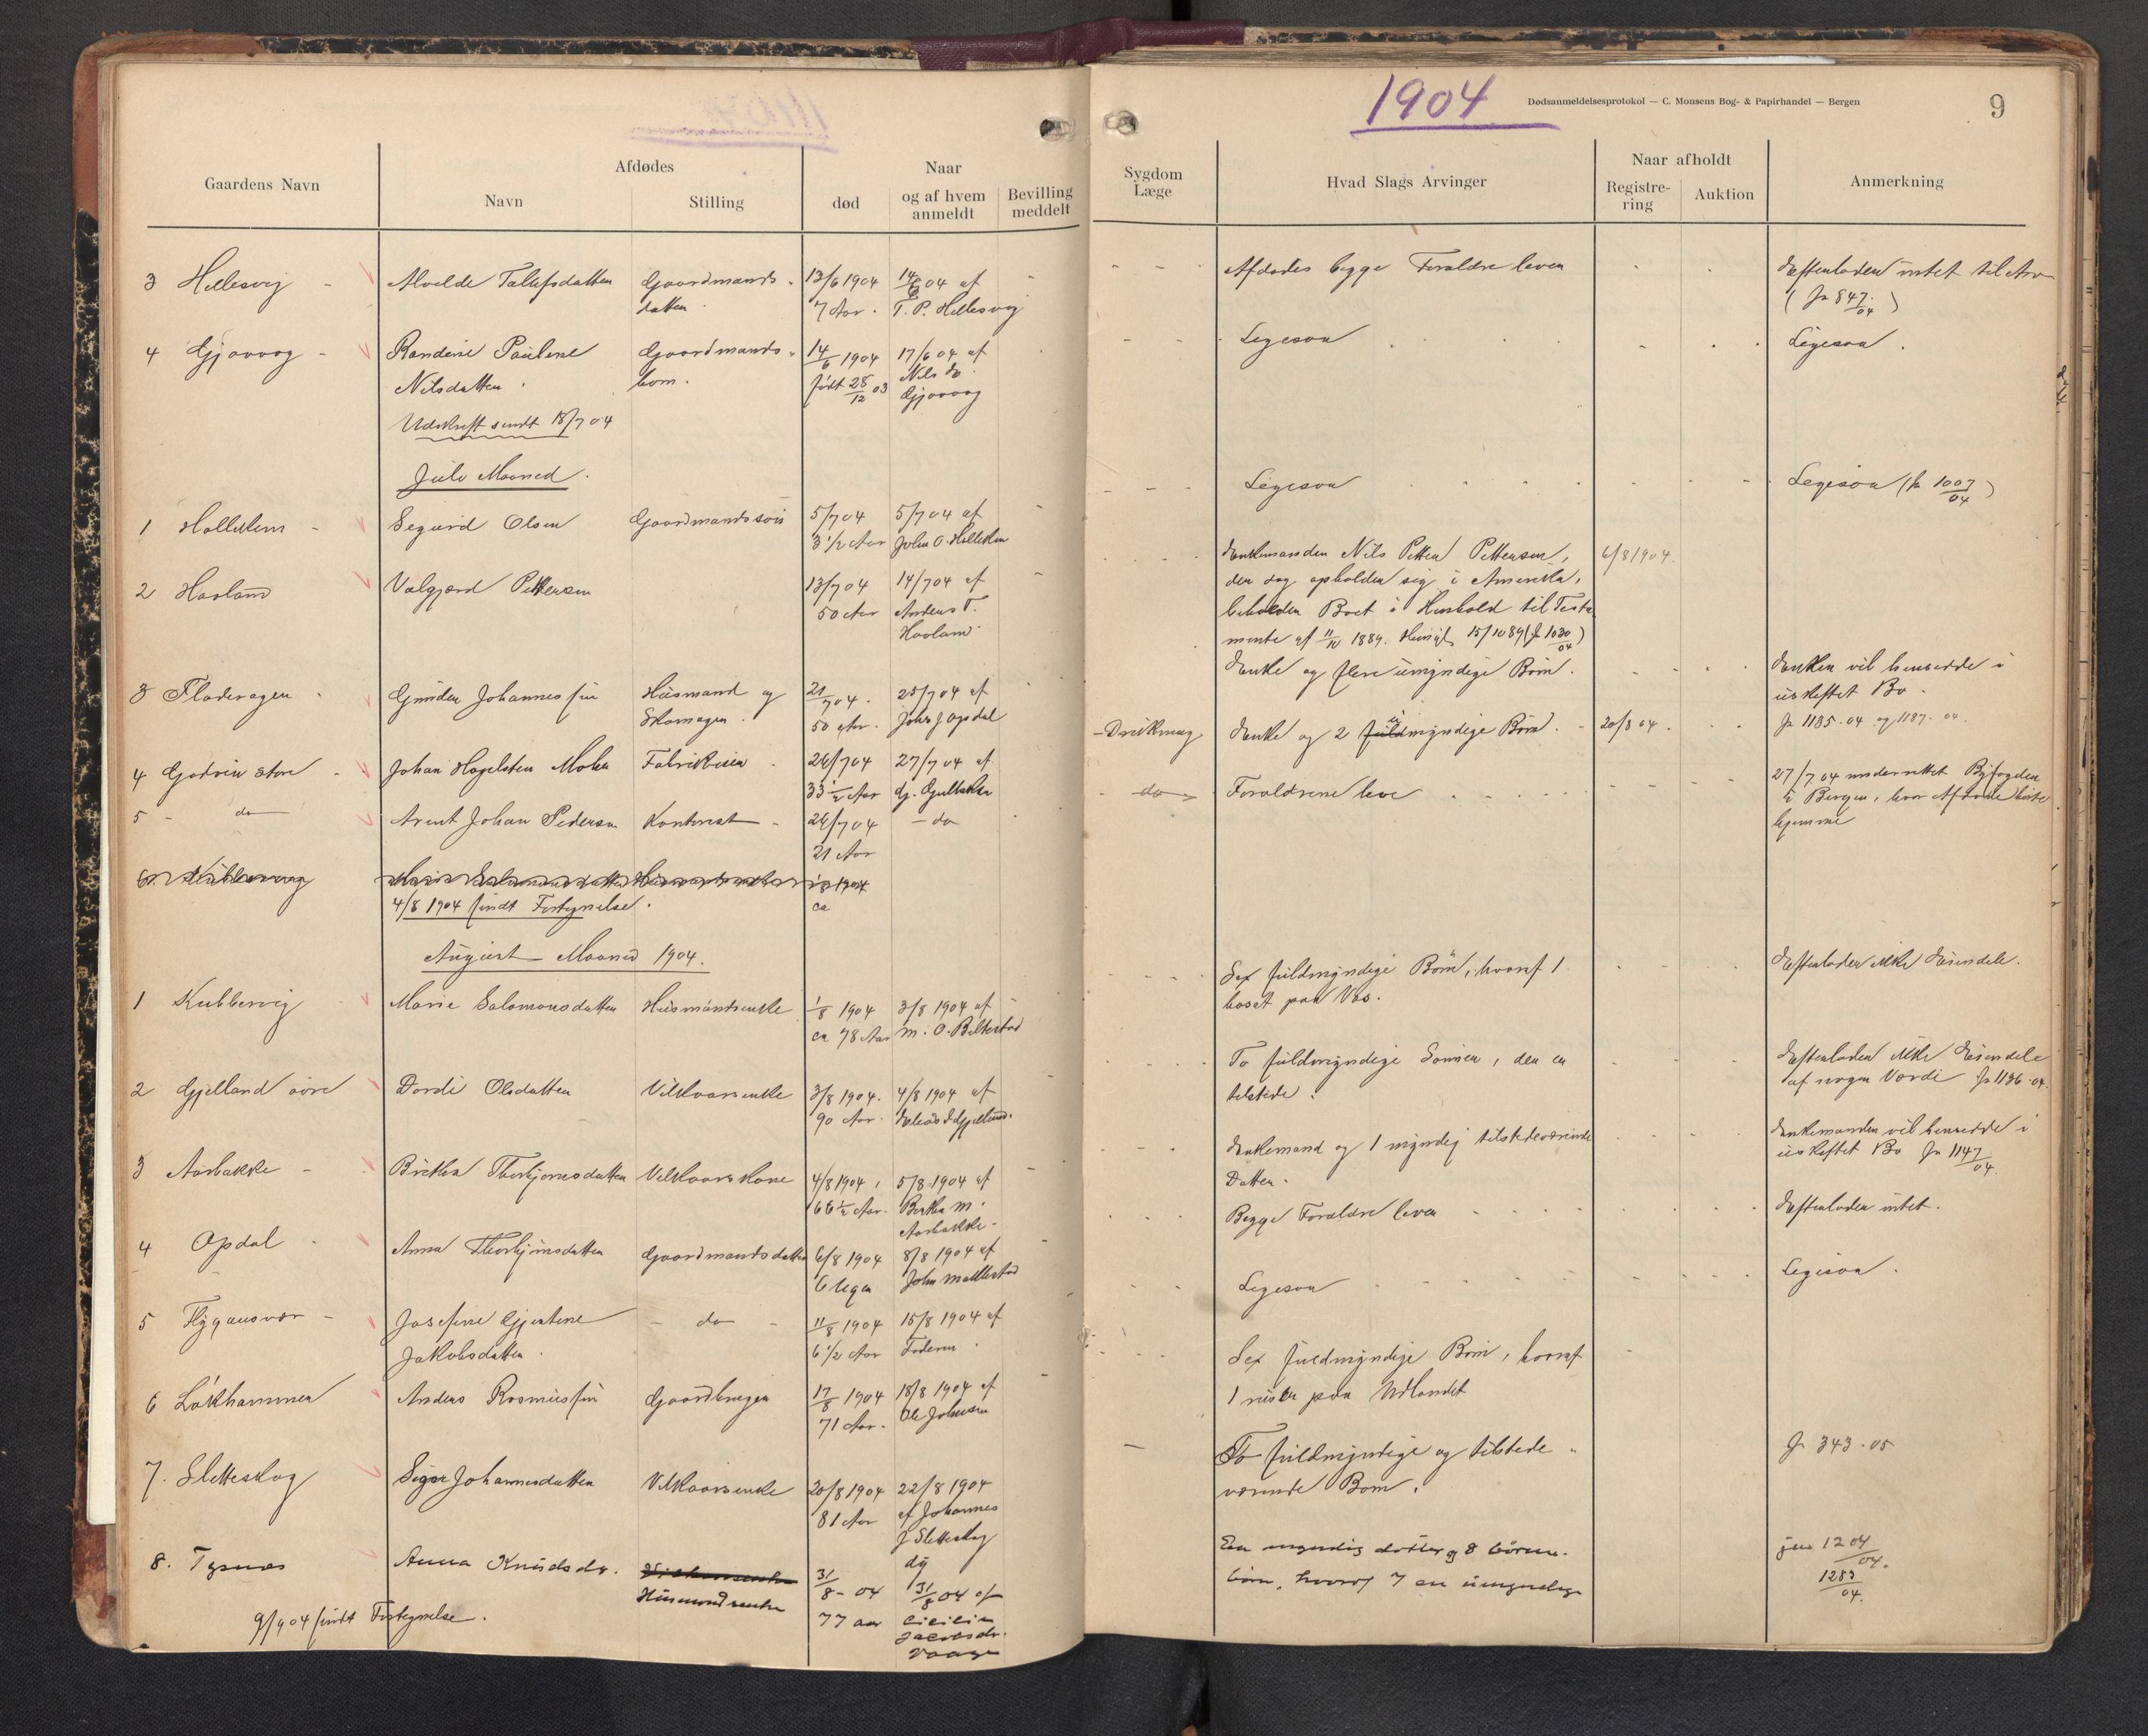 1904
Dødsanmeldelsesprotokol — C. Monsens Bog- & Papirhandel — Bergen
9
Gaardens Navn
Afdødes
Navn
Stilling
Naar
død
og af hvem anmeldt
Bevilling meddelt
Sygdom Læge
Hvad Slags Arvinger
Naar afholdt
Registre-ring
Auktion
Anmerkning
3 Hellesvig - Tallefsdatten Gaardmands- 13/6 1904 14/6 04 af
datten 7 Aar. T. P. Hellesvig
Afdødes begge Forældre lever
Efterladen intet til Arv
(Jr 847/04)
4 Gjøvaag - Randine Pauline Gaardmands- 14/6 1904 17/6 04 af
Nilsdatten barn. født 28/12 03 Nils
Gjøvaag
Ligesaa
Ligesaa.
Udskrift sendt 18/7 04
Juli Maaned.
1 - Sigurd Olsen Gaardmandssøn 5/7 04 5/7 04 af
3 1/2 Aar John O.
Ligesaa
Ligesaa (Jr 1007/04)
2 Haaland Valgjerd Pettersen 13/7 04 14/7 04 af
50 Aar Anders T.
Haaland
Enkemanden Nils Petter Pettersen, 6/8 1904.
der dog opholder sig i Amerika,
beholder Boet i Henhold til Testa
mente af 1889. 15/10 89 (Jr 1030/04)
3 Fladevagen Gunder Johannessen Husmand og 21/7 04. 25/7 04 af
Skomager. 50 Aar. Johs J Opdal
Enke og flere umyndige Børn.
Enken vil hensidde i
uskiftet Bo.
Jr 1135.04 og 1187.04.
4 Godøen store Johan Hagelsten Mohn Fabrikeier 26/7 04 27/7 04 af
33 1/2 Aar
- Drukning Enke og 2 umyndige Børn. - 20/8 04.
27/7 04 underrettet Byfogden
i Bergen, hvor Afdøde hørte
hjemme
5 - do Arent Johan Pedersen Kontorist - 26/7 04 - do
21 Aar
- do - Forældrene lever
6 Kubbervig
4/8 1904 sendt Fortegnelse.
August Maaned 1904.
1 Kubbervig Marie Salomonsdatten Husmandsenke 1/8 1904 3/8 1904 af
ca 78 Aar M. O. Beltestad
Sex fuldmyndige Børn, hvoraf 1
bosat paa Vos.
Efterlader ikke Eiendele.
2 Gjelland øvre Dordi Olsdatten Vilkaarsenke 3/8 1904. 4/8 1904 af
90 Aar.
To fuldmyndige Sønner, den en
tilstede.
Efterladen ikke Eiendele
af nogen Værdi Jr 1136.04.
3 Aarbakke - Brithe Thorbjørnsdatten Vilkaarskone 4/8 1904, 5/8 1904 af
66 1/2 Aar. M.
Aarbakke.
Enkemand og 1 myndig tilstedeværende
Datter.
Enkemanden vil hensidde i
uskiftet Bo Jr 1147/04.
4 Opdal Anna Thorbjørnsdatten Gaardmandsdatter 6/8 1904 8/8 1904 af
6 Uger John
Begge Forældre lever
Efterladen intet.
5 Flygansvær - Josefine Gjertine - do - 11/8 1904 15/8 1904 af
Jakobsdatten. 6 1/2 Aar Faderen.
Ligesaa
Ligesaa.
6 Løkhammer Anders Rasmussen Gaardbruger 17/8 1904 18/8 1904 af
71 Aar. Ole Johnsen
Sex fuldmyndige Børn, hvoraf
1 reiser paa Udlandet
7. Sletteskog Johannesdatten Vilkaarsenke 20/8 1904 22/8 1904
81 Aar af Johannes
J Sletteskog
To fuldmyndige og tilstede-
værende Børn.
Jr 343.05
8. Tysnes Anna Knudsdr. 31/8 - 04 31/8 04 af
Husmandsenke 77 aar
Jacobsdr.
Vaage
En myndig datter og 8 børne-
børn, hvoraf 7 er umyndige
jnr 1204/04.
1283/04.
9/9 04 sendt Fortegnelse.